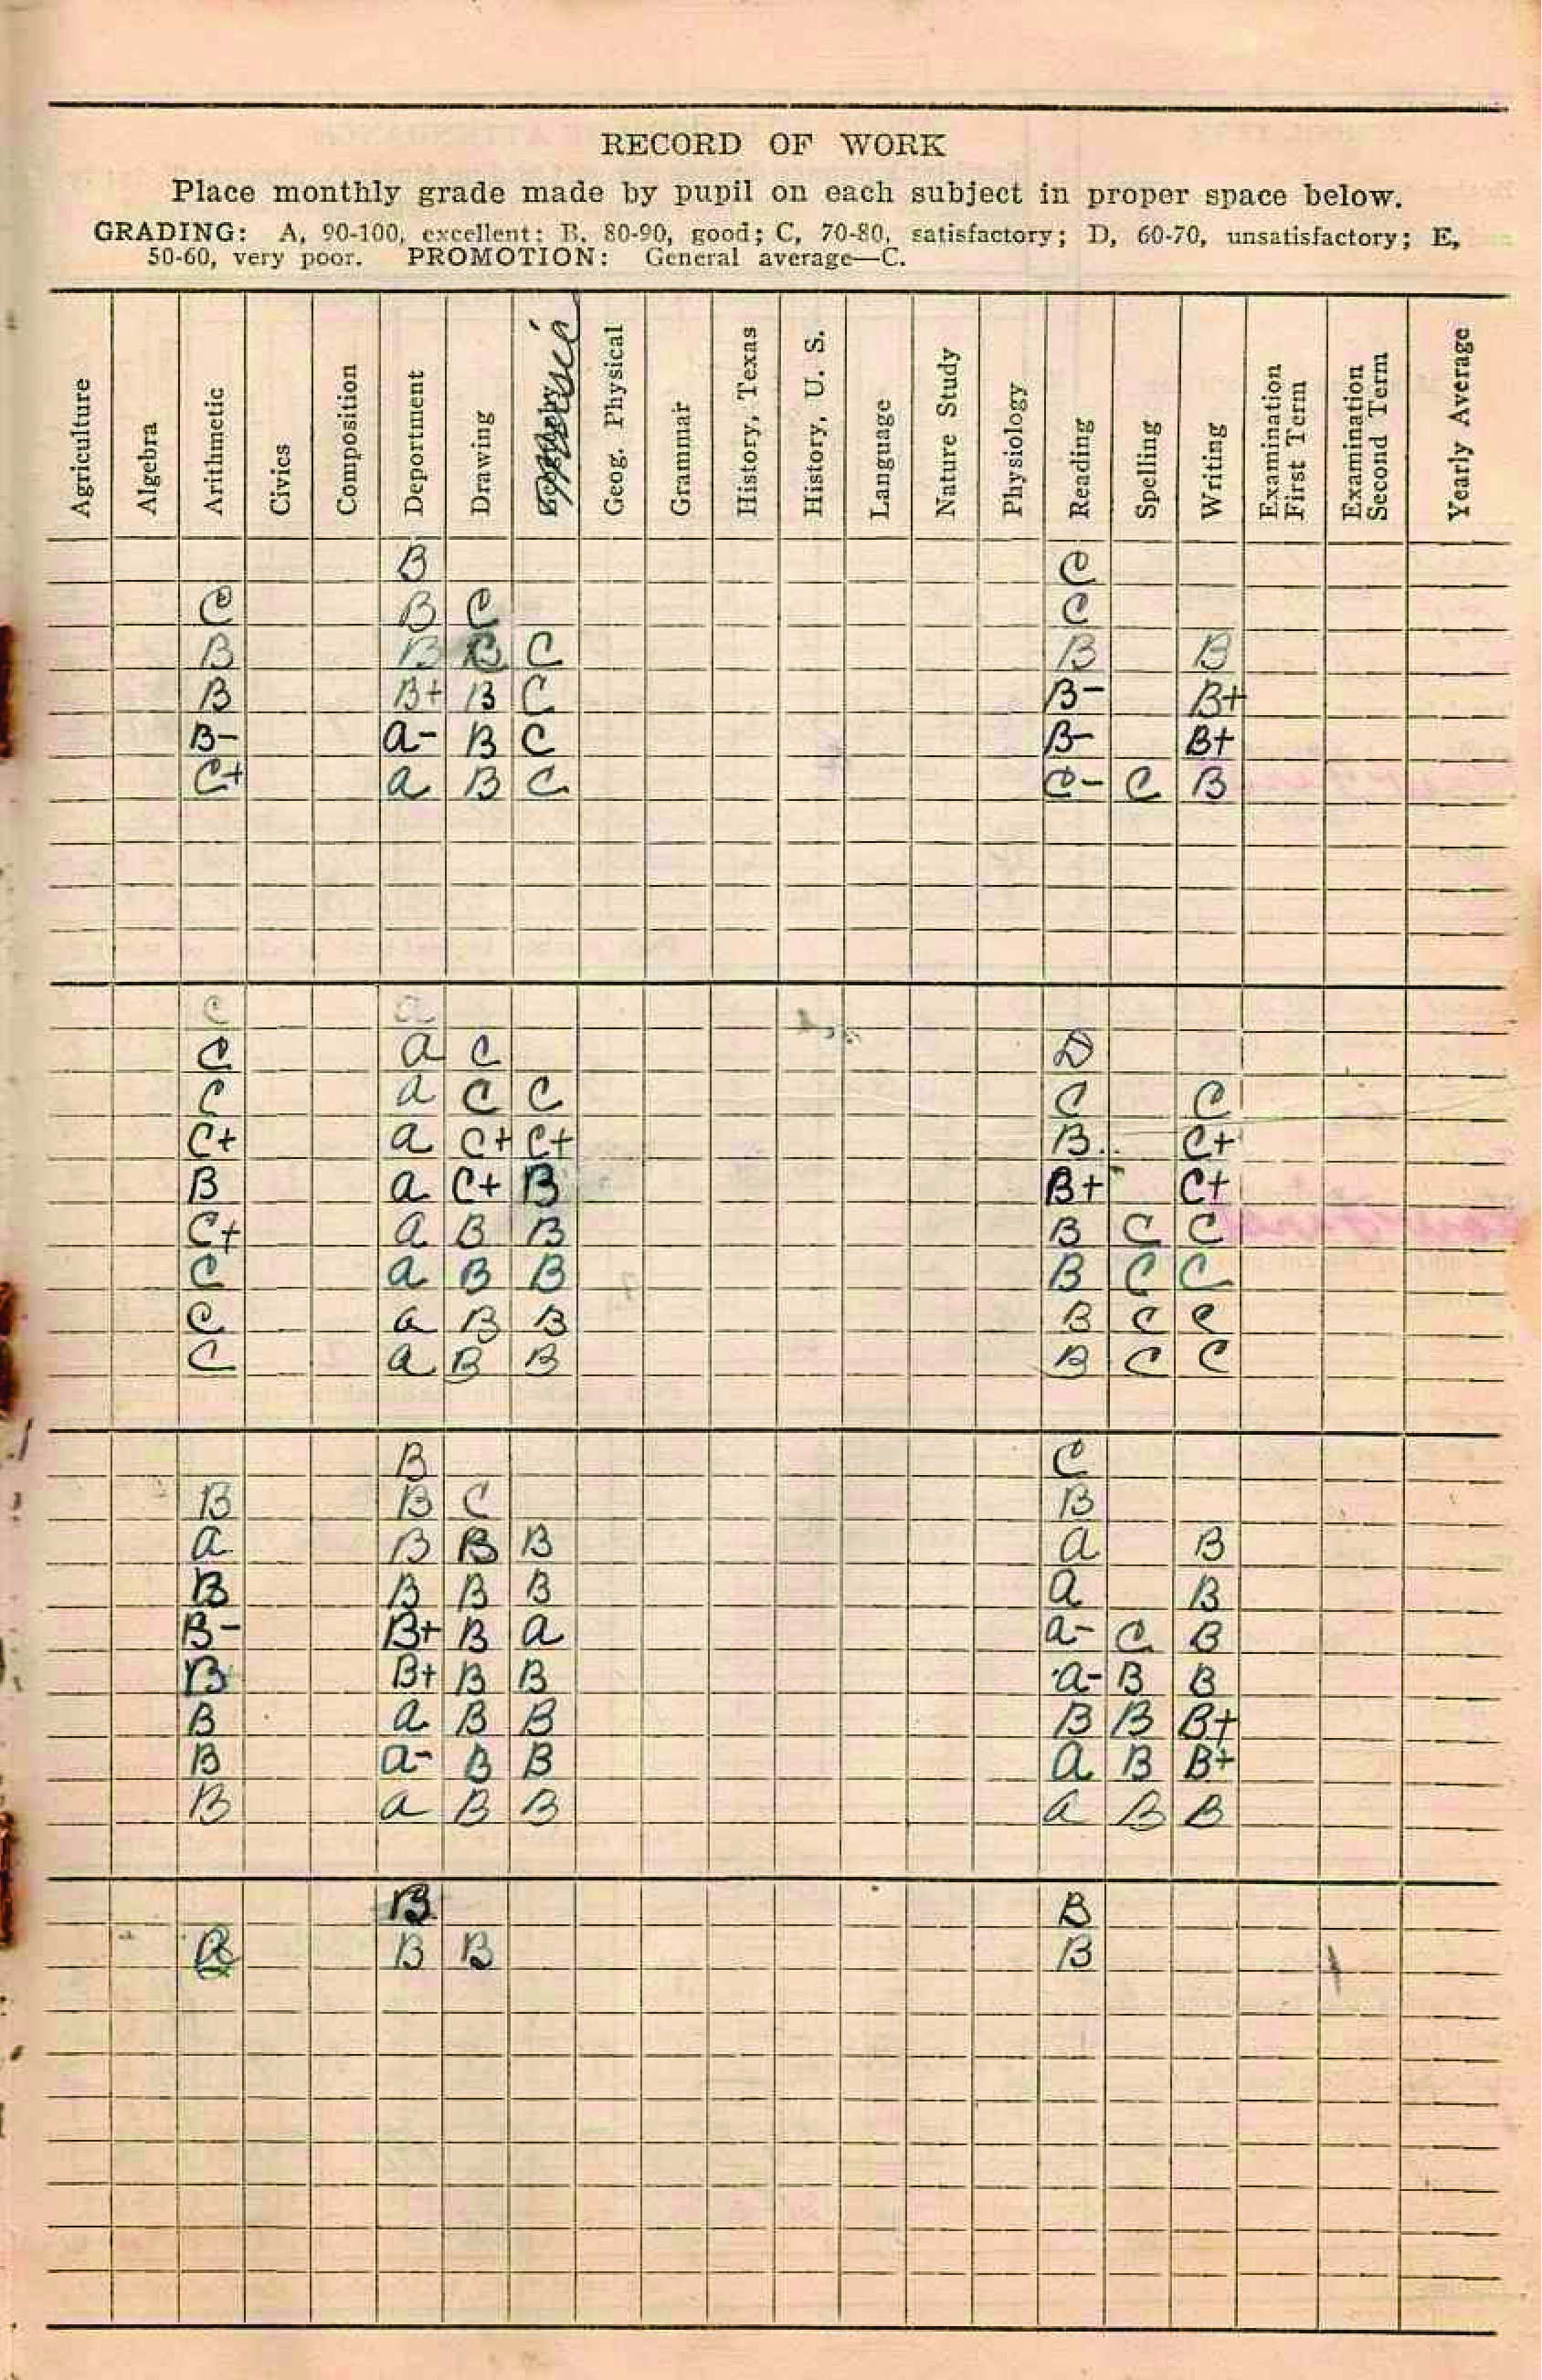 RECORD OF WORK
Place monthly grade made by pupil on each subject in proper space below.
GRADING: A, 90-100, excellent; B, 80-90, good; C, 70-80, satisfactory; D, 60-70, unsatisfactory; E,
50-60, very poor. PROMOTION: General average—C.
Agriculture
Algebra
Arithmetic
Civics
Composition
Deportment
Drawing
Music
Geog. Physical
Grammar
History, Texas
History, U. S.
Language
Nature Study
Physiology
Reading
Spelling
Writing
Examination
First Term
Examination
Second Term
Yearly Average
B C
C B C C
B B B C B B
B B+ B C B- B+
B- a- B C B- B+
C+ a B C C- C B
C a
C a C D
C a C C C C
C+ a C+ C+ B C+
B a C+ B B+ C+
C+ a B B B C C
C a B B B C C
C a B B B C C
C a B B B C C
B C
B B C B
a B B B a B
B B B B a B
B- B+ B a a- C B
B B+ B B a- B B
B a B B B B B+
B a- B B a B B+
B a B B a B B
B B
B B B